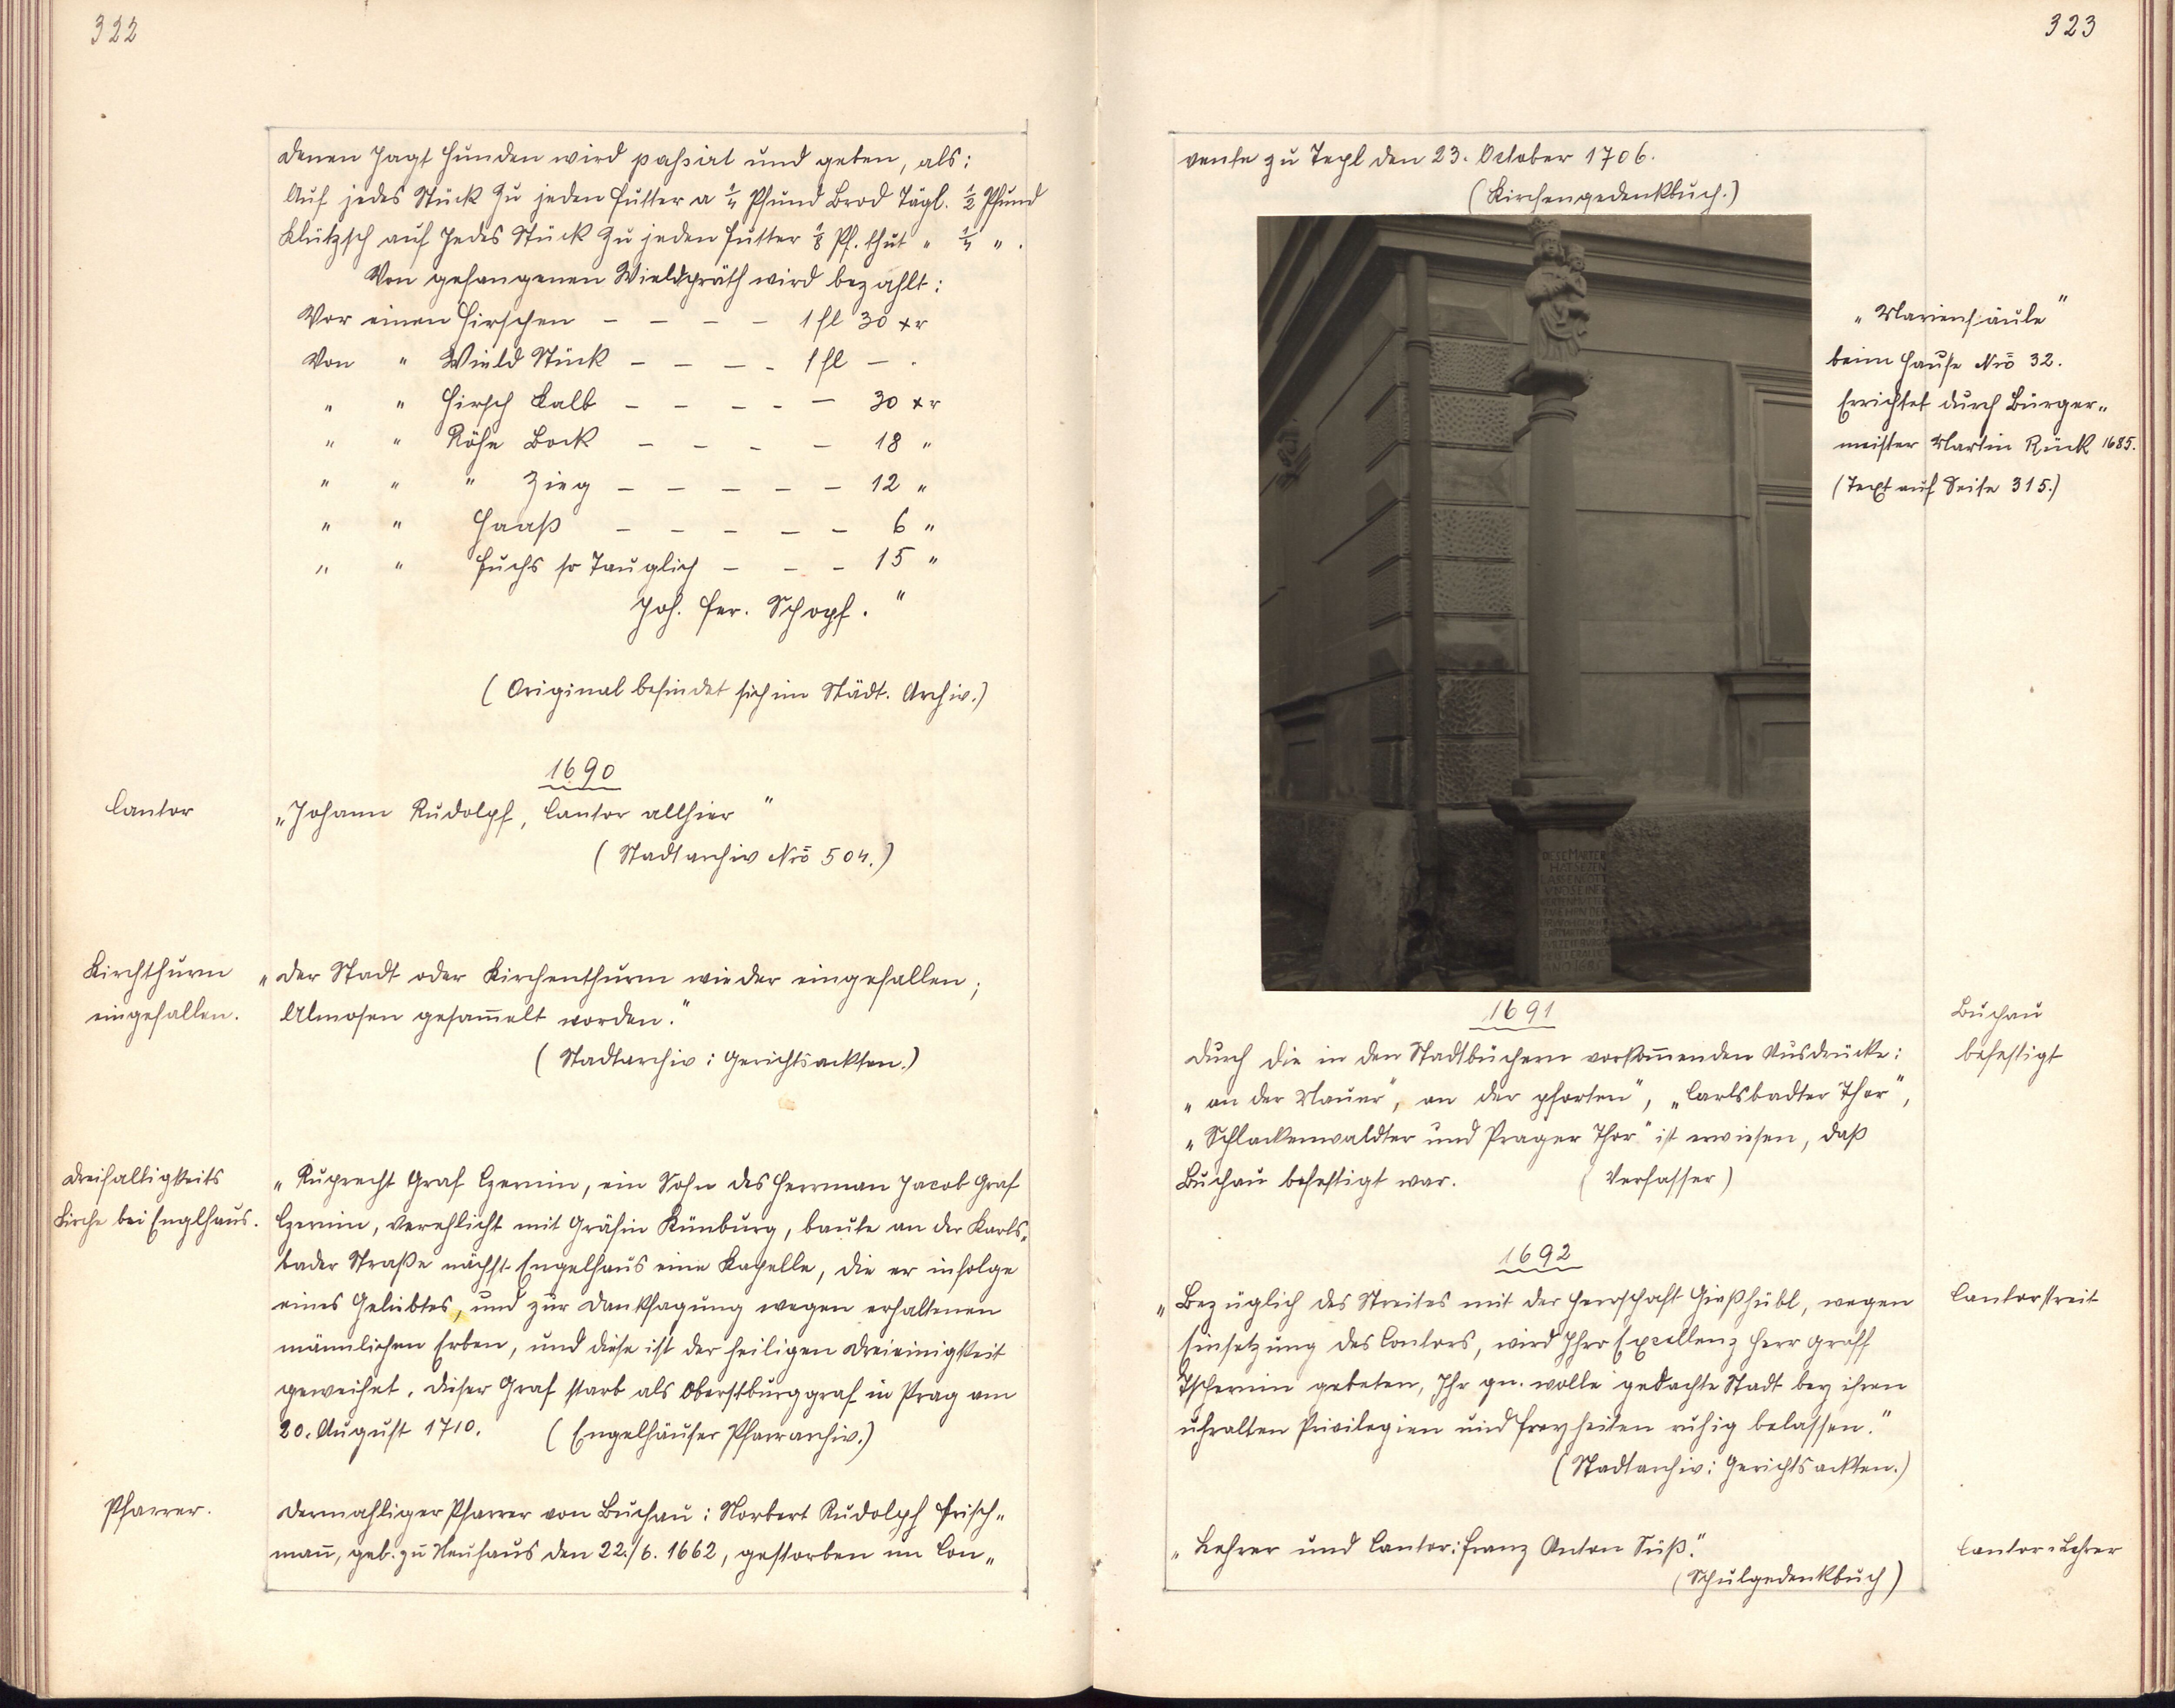 322
denen Jagt Hunden wird paßirt und geben, als:
Auf jedes Stück Zu jeden Futter a ¼ Pfund Brod Tägl. ½ Pfund
Klützsch auf Jedes Stück Zu jeden Futter ⅛ Pf. thut " ¼ " .
Von gefangenen Wieldpräth wird bezahlt:
Vor einen Hirschen – – – – 1 fl 30 xr
Von " Wield Stück – – – – 1 fl – .
" " Hirsch Kalb – – – – – 30 xr
" " Röhe Bock – – – – 18 "
" " " Zieg – – – – – 12 "
" " Haaß – – – – – 6 "
" " Fuchs so Tauglich – – – 15 "
Joh. Fer. Schopf. "
(Original befindet sich im Städt. Archiv.)
1690
Cantor
„Johann Rudolph, Cantor allhier "
(Stadtarchiv Nrō 504.)
Kirchthurm
eingefallen.
„der Stadt oder Kirchenthurm wieder eingefallen;
Almosen gesam̄elt worden."
(Stadtarchiv: Gerichtsackten.)
Dreifaltigkeits
Kirche bei Englhaus.
„Ruprecht Graf Czernin, ein Sohn des Herrman Jacob Graf
Czernin, verehlicht mit Gräfin Künburg, baute an der Karls„
bader Straße nächst Engelhaus eine Kapelle, die er infolge
eines Gelübtes, und zur Danksagung wegen erhaltenen
männlichen Erben, und diese ist der heiligen Dreieinigkeit
geweihet. Dieser Graf starb als Oberstburggraf in Prag am
20. August 1710. (Engelhäuser Pfarrarchiv.)
Pfarrer.
Dermahliger Pfarrer von Buchau: Norbert Rudolph Frisch„
man̄, geb. zu Neuhaus den 22./6. 1662, gestorben im Con„
323
vente zu Tepl den 23. October 1706.
(Kirchengedenkbuch.)
„Mariensäule"
beim Hause Nrō 32.
Errichtet durch Bürger„
meister Martin Rück 1685.
(Text auf Seite 315.)
DIESE MARTER
HAT SEZEN
LASSEN GOTT
1691
Buchau
befestigt
Durch die in den Stadtbüchern vorkom̄enden Ausdrücke:
„an der Mauer", an der pforten", „Carlsbadter Thor",
„Schlackenwaldter und Prager Thor" ist erwiesen, daß
Buchau befestigt war. (Verfasser)
1692
Cantorstreit
„Bezüglich des Streites mit der Herrschaft Gießhübl, wegen
Einsetzung des Cantors, wird Ihro Excellenz Herr Graff
Tschernin gebeten, Ihr gn. wolle gedachte Stadt bey ihren
uhralten Privilegien und Freyheiten ruhig belassen."
(Stadtarchiv: Gerichtsackten.)
Cantor-Lehrer
„Lehrer und Cantor: Franz Anton Süß."
(Schulgedenkbuch)